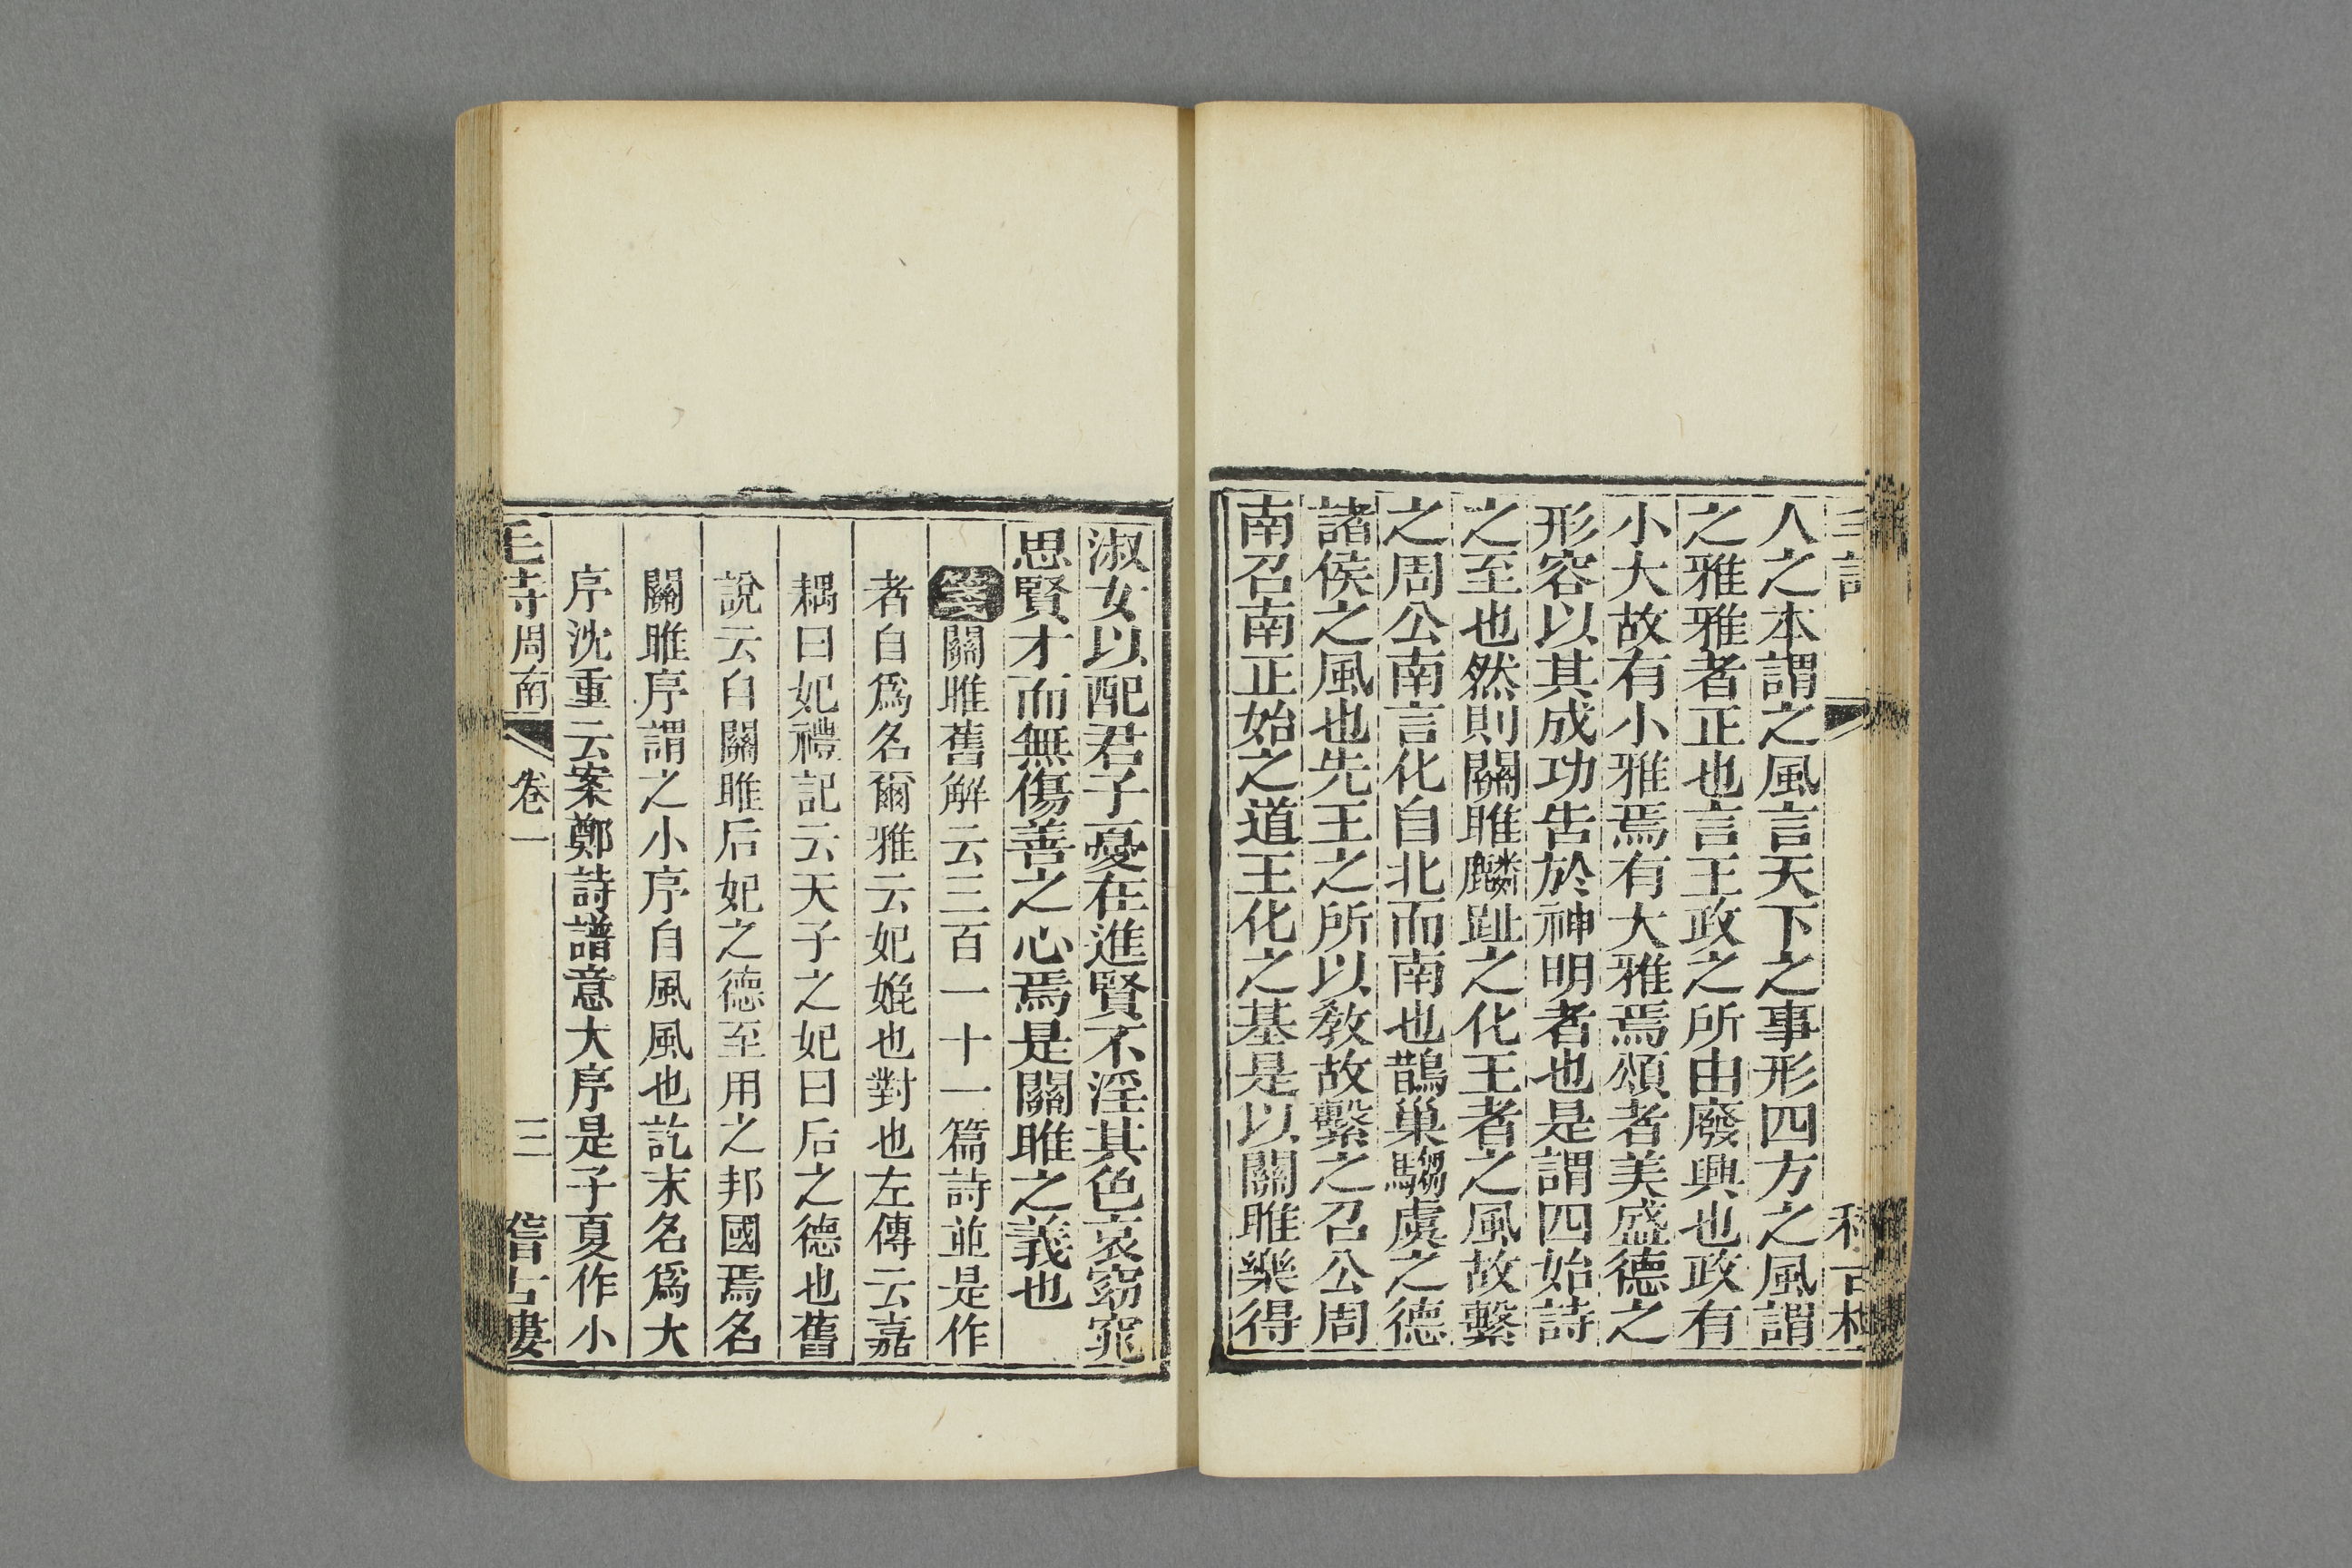 人之本謂之風言天下之事形四方之風謂
之雅雅者正也言王政之所由廢興也政有
小大故有小雅焉有大雅焉頌者美盛德之
形容以其成功告於神明者也是謂四始詩
之至也然則關雎麟趾之化王者之風故繫
之周公南言化自北而南也鵲巢騶虞之德
諸侯之風也先王之所以敎故繫之召公周
南召南正始之道王化之基是以關雎樂得
淑女以配君子憂在進賢不淫其色哀窈窕
思賢才而無傷善之心焉是關雎之義也
箋關雎舊解云三百一十一篇詩並是作
者自爲名爾雅云妃媲也對也左傳云嘉
耦曰妃禮記云天子之妃曰后之德也舊
說云自關雎后妃之德至用之邦國焉名
關雎序謂之小序自風風也訖末名爲大
序沈重云案鄭詩譜意大序是子夏作小
毛寺周南 卷一 三 古婁